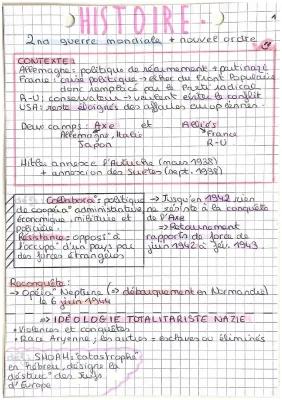 HISTOIRE.
2nd guerre mondiale + nouvel ordre
CONTEXTE:
Allemagne: politique de réarmement +
France: crise politique → échec du Front Populaire
donc remplacé par le Parti radical
R-U: conservateur → veulent éviter le conflit
USA: reste éloignés des affaires européennes.
Deux camps: Axe et Alliés
Allemagne, Italie France
Japon R-U
Hitler annexe l'Autriche (mars 1938)
+ annexion des Sudètes (sept. 1938)
Collabora°: politique
de coopéra° administrative
économique, militaire et
policière.
Résistance: opposit° à
l'occupa° d'un pays par
des forces étrangères
→ Jusqu'en 1942 rien
ne résiste à la conquête
de l'Axe
→ Retournement
rapports de force de
juin 1942 à fév. 1943
Reconquête:
→ Opéra° Neptune (→ débarquement en Normandie)
le 6 juin 1944
→ IDÉOLOGIE TOTALITARISTE NAZIE
• Violences et conquêtes
• Race Aryenne; les autres = esclaves ou éliminés
déf: SHOAH: "catastrophe"
en hébreu, désigne la
destruct° des Juifs
d'Europe